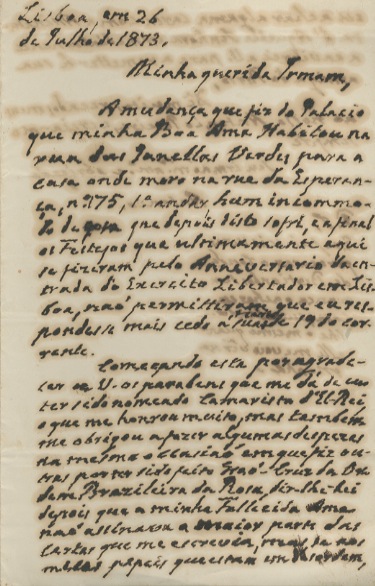 Lisboa, em 26
de Julho de 1873.
Minha querida Irmam,
A mudança que fiz do Palacio
que minha Boa Ama Habitou na
rua das Janellas Verdes para a
casa onde moro na rua da Esperan-
ça, nº 175, 1º andar hum incommo-
do de que depois disto sofri, e afinal
os Festejos que ultimamente aqui
se fizeram pelo Anniversario da en-
trada do Exercito Libertador em Lis-
boa, naõ permittiram que eu res-
pondesse mais cedo á sua de 19 do cor-
rente.
Começando esta por agrade-
cer a V. os parabens que me dá de eu
ter sido nomeado Camarista d'El-Rei
o que me honrou muito, mas tambem
me obrigou a fazer algumas despezas
na mesma occasiaõ em que fiz ou-
tras por ter sido feito Graõ-Cruz da Or-
dem Brazileira da Rosa, dir-lhe-hei
depois que a minha Fallecida Ama
naõ assinava a maior parte das
cartas que me escrevia, mas
papeis que estam em desordem,